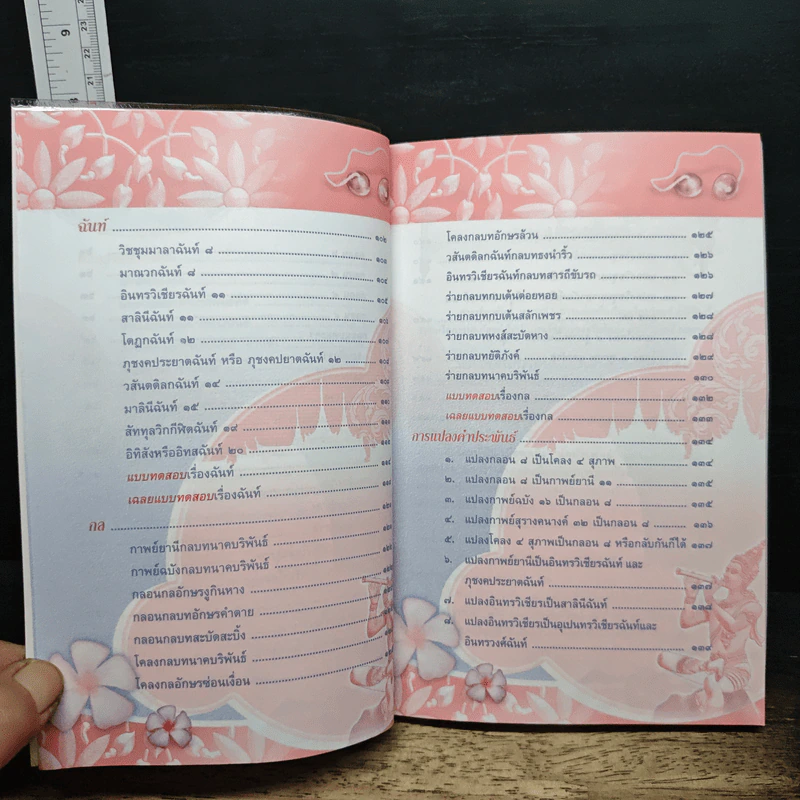 ฉันท์ ๑๐๒
วิชชุมมาลาฉันท์ ๘
มาณวกฉันท์ ๘
อินทรวิเชียรฉันท์ ๑๑
สาลินีฉันท์ ๑๑
โตฎกฉันท์ ๑๒
ภุชงคประยาตฉันท์ หรือ ภุชงคปยาตฉันท์ ๑๒
วสันตดิลกฉันท์ ๑๔
มาลินีฉันท์ ๑๕
สัททุลวิกกีฬิตฉันท์ ๑๙
อิทิสังหรืออิทสฉันท์ ๒๐
แบบทดสอบเรื่องฉันท์
เฉลยแบบทดสอบเรื่องฉันท์
กล
กาพย์ยานีกลบทนาคบริพันธ์
กาพย์ฉบังกลบทนาคบริพันธ์
กลอนกลอักษรงูกินหาง
กลอนกลบทอักษรคำตาย
กลอนกลบทสะบัดสะบิ้ง
โคลงกลบทนาคบริพันธ์
โคลงกลอักษรซ่อนเงื่อน
โคลงกลบทอักษรล้วน ๑๒๕
วสันตดิลกฉันท์กลบทธงนำริ้ว ๑๒๖
อินทรวิเชียรฉันท์กลบทสารถีขับรถ ๑๒๖
ร่ายกลบทกบเต้นต่อยหอย ๑๒๗
ร่ายกลบทกบเต้นสลักเพชร ๑๒๘
ร่ายกลบทหงส์สะบัดหาง ๑๒๘
ร่ายกลบทยัติภังค์ ๑๒๙
ร่ายกลบทนาคบริพันธ์ ๑๓๐
แบบทดสอบเรื่องกล ๑๓๒
เฉลยแบบทดสอบเรื่องกล ๑๓๓
การแปลงคำประพันธ์ ๑๓๔
๑. แปลงกลอน ๘ เป็นโคลง ๔ สุภาพ ๑๓๔
๒. แปลงกลอน ๘ เป็นกาพย์ยานี ๑๑ ๑๓๕
๓. แปลงกาพย์ฉบัง ๑๖ เป็นกลอน ๘ ๑๓๕
๔. แปลงกาพย์สุรางคนางค์ ๓๒ เป็นกลอน ๘ ๑๓๖
๕. แปลงโคลง ๔ สุภาพเป็นกลอน ๘ หรือกลับกันก็ได้ ๑๓๗
๖. แปลงกาพย์ยานีเป็นอินทรวิเชียรฉันท์ และ
ภุชงคประยาตฉันท์ ๑๓๗
๗. แปลงอินทรวิเชียรเป็นสาลินีฉันท์ ๑๓๘
๘. แปลงอินทรวิเชียรเป็นอุเปนทรวิเชียรฉันท์และ
อินทรวงศ์ฉันท์ ๑๓๙